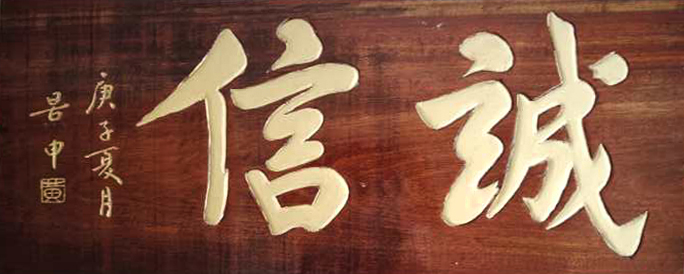 誠信
庚子夏月
昌申
黄